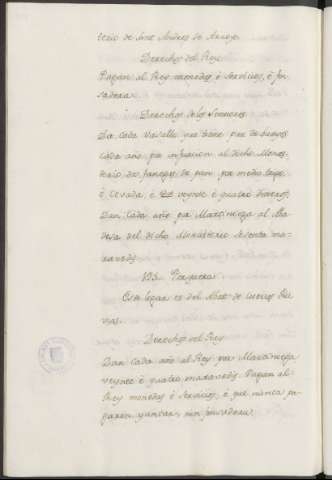 terio de Sant Andres de Arroyo.
Derechos del Rey
Pagan al Rey monedas é Servicios, é fon
sadera.
Derechos de los Sennores
Da cada Vasallo que tiene par de bueyes
cada año por infurcion al dicho Mones
terio dos fanegas de pan por medio trigo
é Cevada, é veynte é quatro dineros,
Dan cada año por Martiniega al Aba
desa del dicho Monesterio sesenta ma
ravedis.
Este logar es del Abat de Cuevas Ru
vias.
Derechos del Rey
Dan cada año al Rey por Martiniega
veynte é quatro maravedis. Pagan al
Rey monedas é Servicios, é que nunca pa
garon yantar, nin fonsadera.